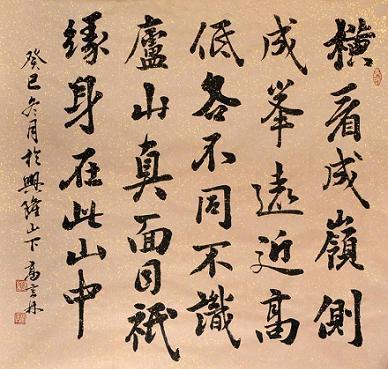 橫看成嶺側
成峯遠近高
低各不同不識
廬山真面目衹
緣身在此山中
癸巳冬月於興隆山下